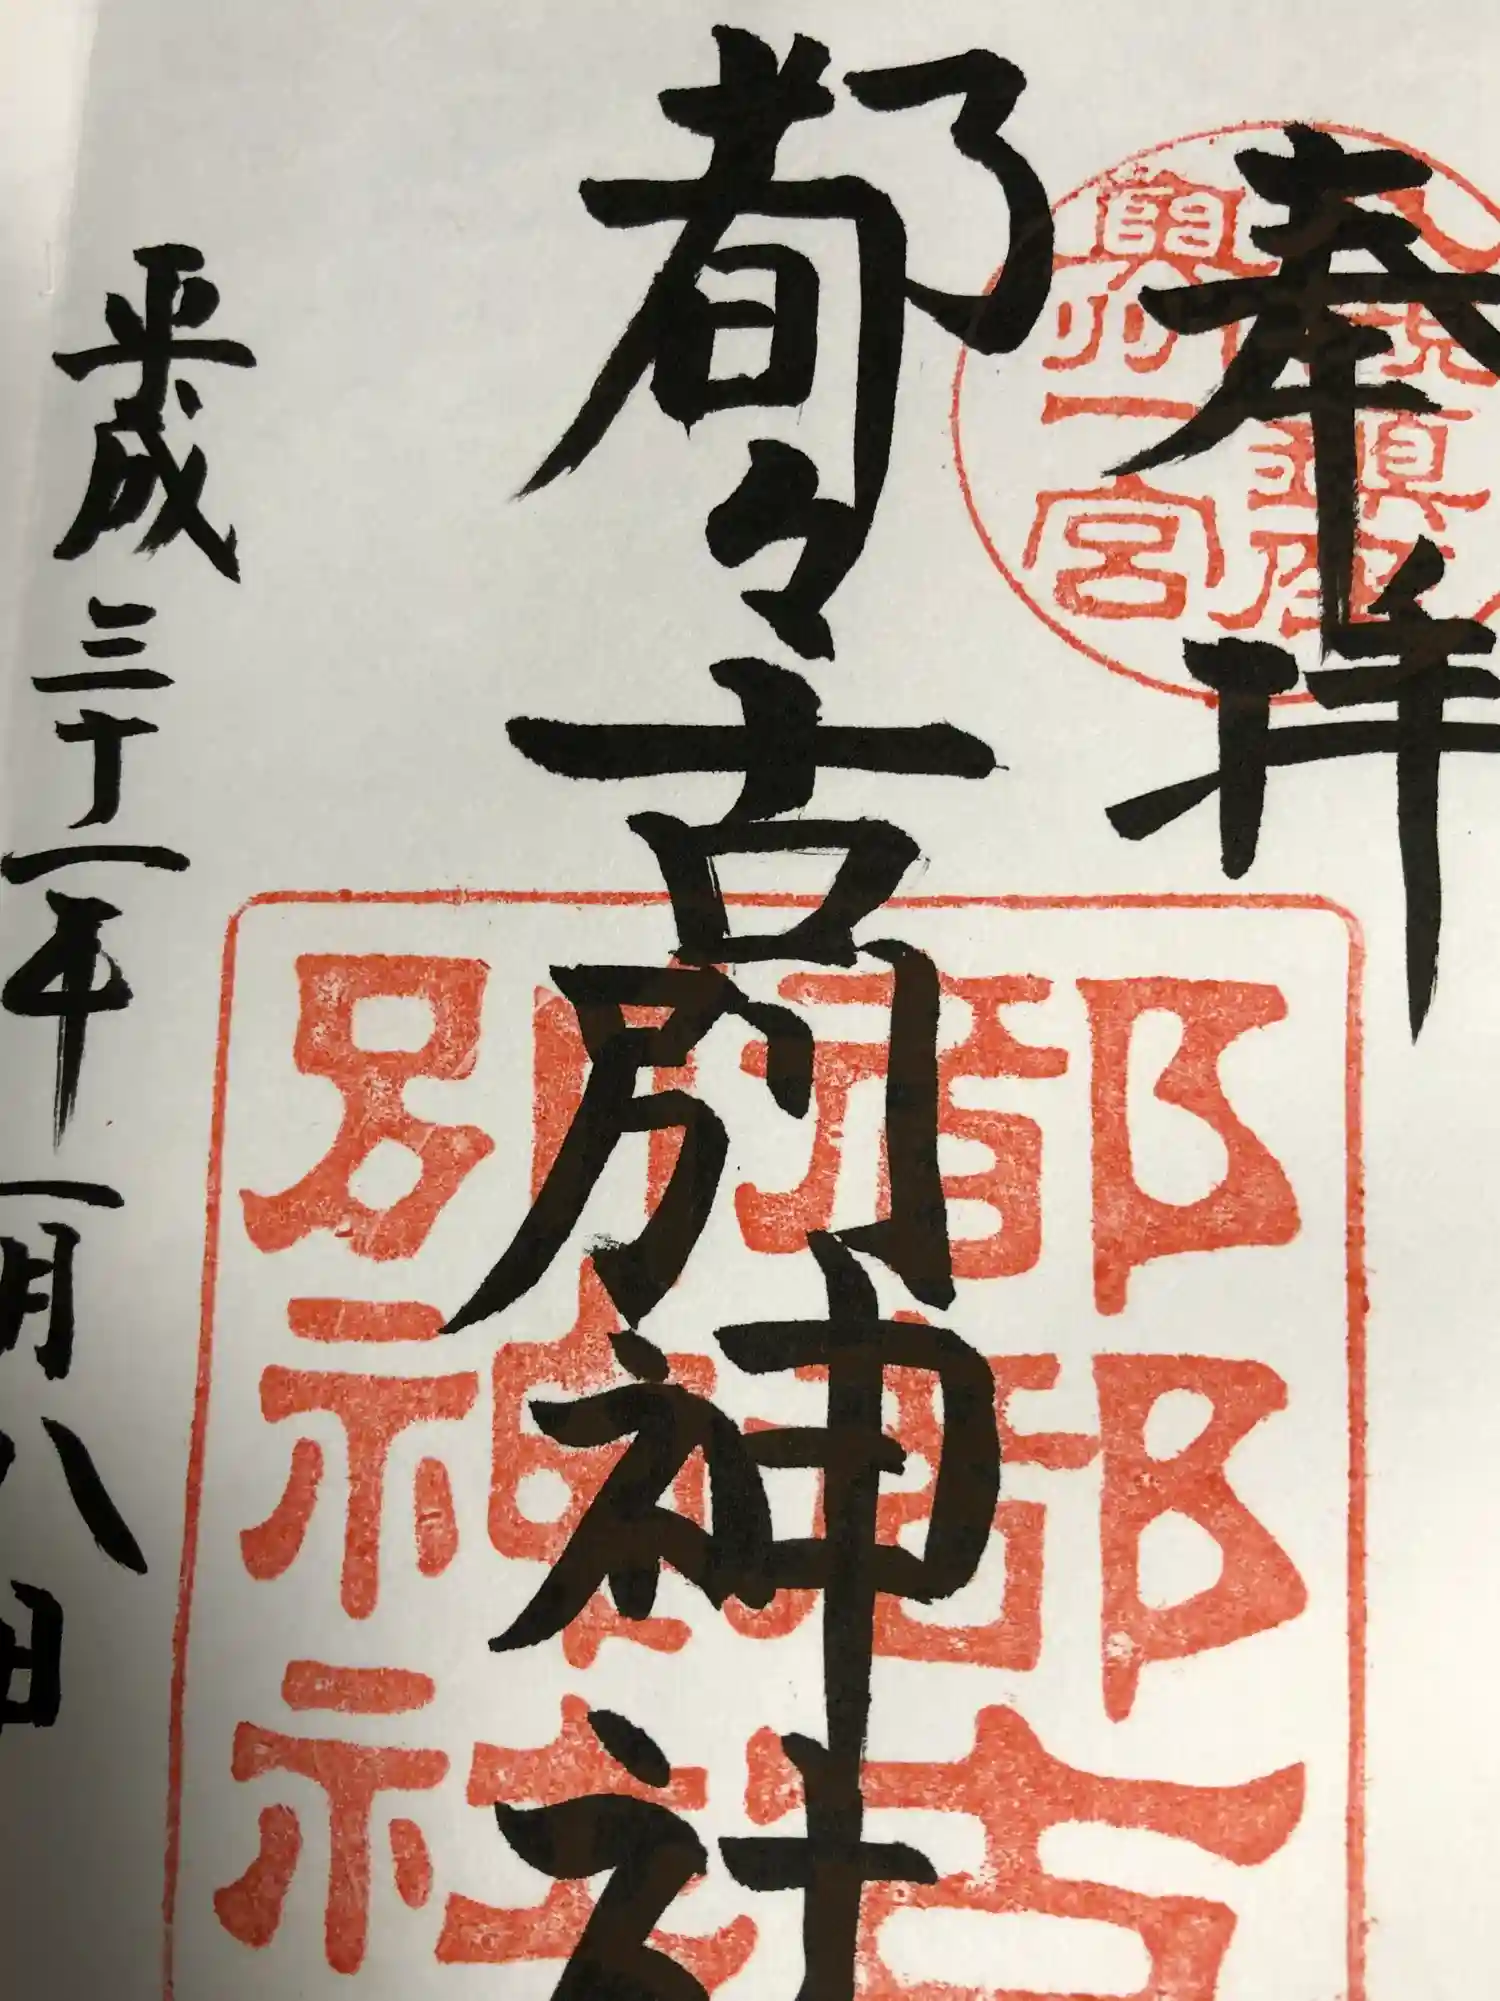 奉拝
八槻鎮座
奥州一宮
都々古別神社
都都古
別神社
平成三十一年一月八日